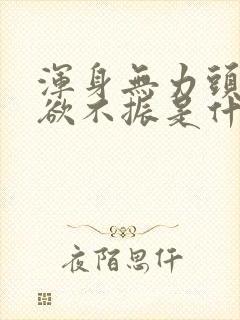 渾身無力頭
欲不振是什
夜陌思仟